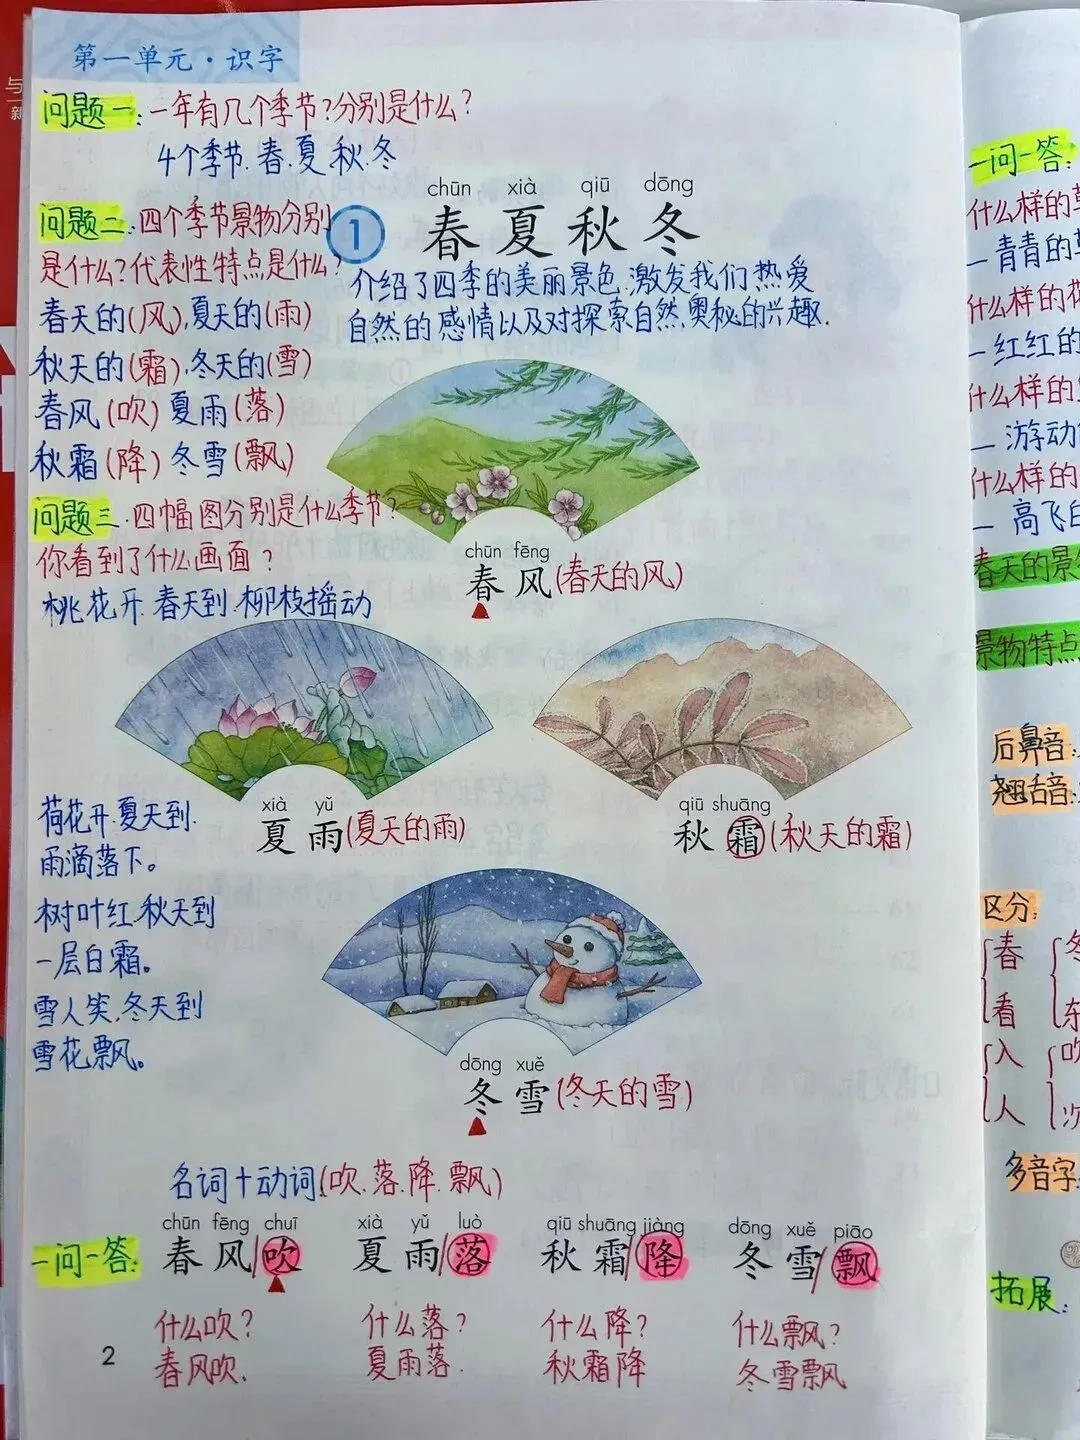 第一单元·识字
问题一:一年有几个季节?分别是什么?
4个季节.春.夏.秋.冬
chūn xià qiū dōng
1 春夏秋冬
介绍了四季的美丽景色.激发我们热爱
自然的感情以及对探索自然.奥秘的兴趣.
问题二:四个季节景物分别
是什么?代表性特点是什么?
春天的(风),夏天的(雨)
秋天的(霜),冬天的(雪)
春风(吹)夏雨(落)
秋霜(降)冬雪(飘)
问题三.四幅图分别是什么季节?
你看到了什么画面?
桃花开.春天到.柳枝摇动
chūn fēng
春风(春天的风)
xià yǔ
夏雨(夏天的雨)
qiū shuāng
秋霜(秋天的霜)
荷花开.夏天到.
雨滴落下。
树叶红.秋天到
一层白霜。
雪人笑.冬天到
雪花飘。
dōng xuě
冬雪(冬天的雪)
名词+动词(吹.落.降.飘)
chūn fēng chuī xià yǔ luò qiū shuāng jiàng dōng xuě piāo
一问一答:春风/吹 夏雨/落 秋霜/降 冬雪/飘
什么吹? 什么落? 什么降? 什么飘?
春风吹. 夏雨落. 秋霜降 冬雪飘
2
一问一答:
什么样的
—青青的
什么样的
—红红的
什么样的
—游动
什么样的
—高飞
春天的景
景物特点
后鼻音:
翘舌音:
区分:
春 冬
看 东
入 吹
人 次
多音字
拓展:
与
新